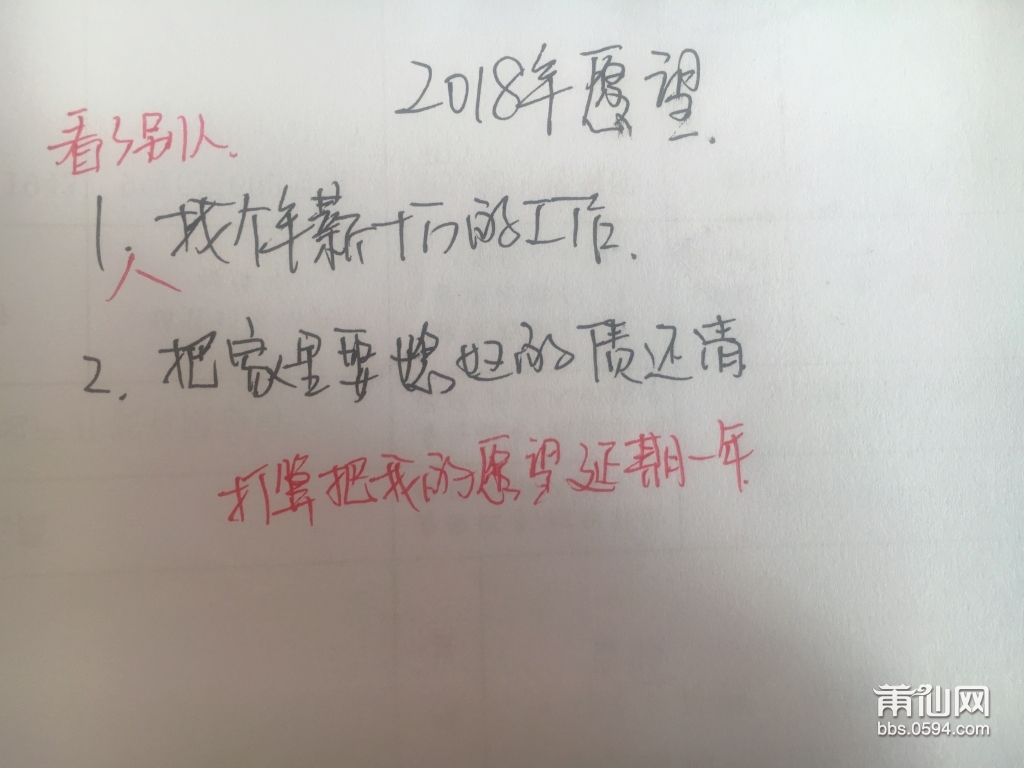 2018年愿望.
看了别人.
1. 找个年薪十万的工作.
人
2. 把家里娶媳妇的债还清
打算把我的愿望延期一年.
莆仙网
bbs.0594.com